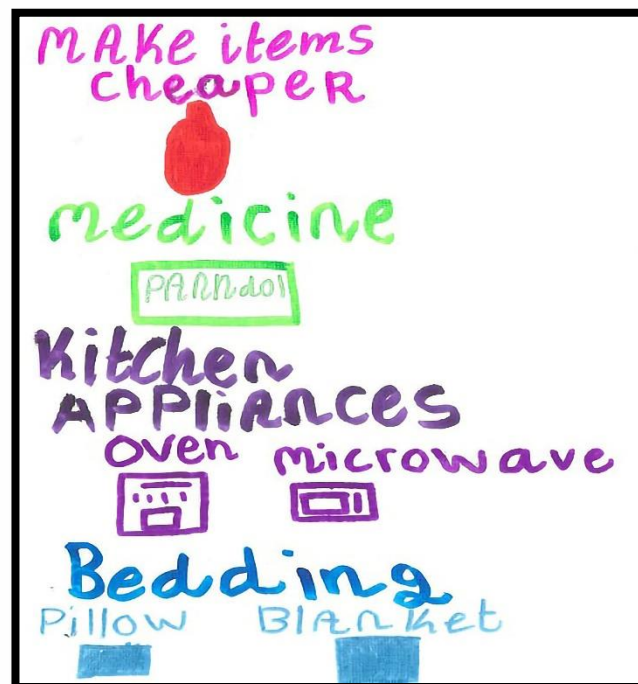 MAKe items
cheaper
medicine
PANNdol
Kitchen
APPliANCes
oven microwave
Bedding
Pillow BlANket